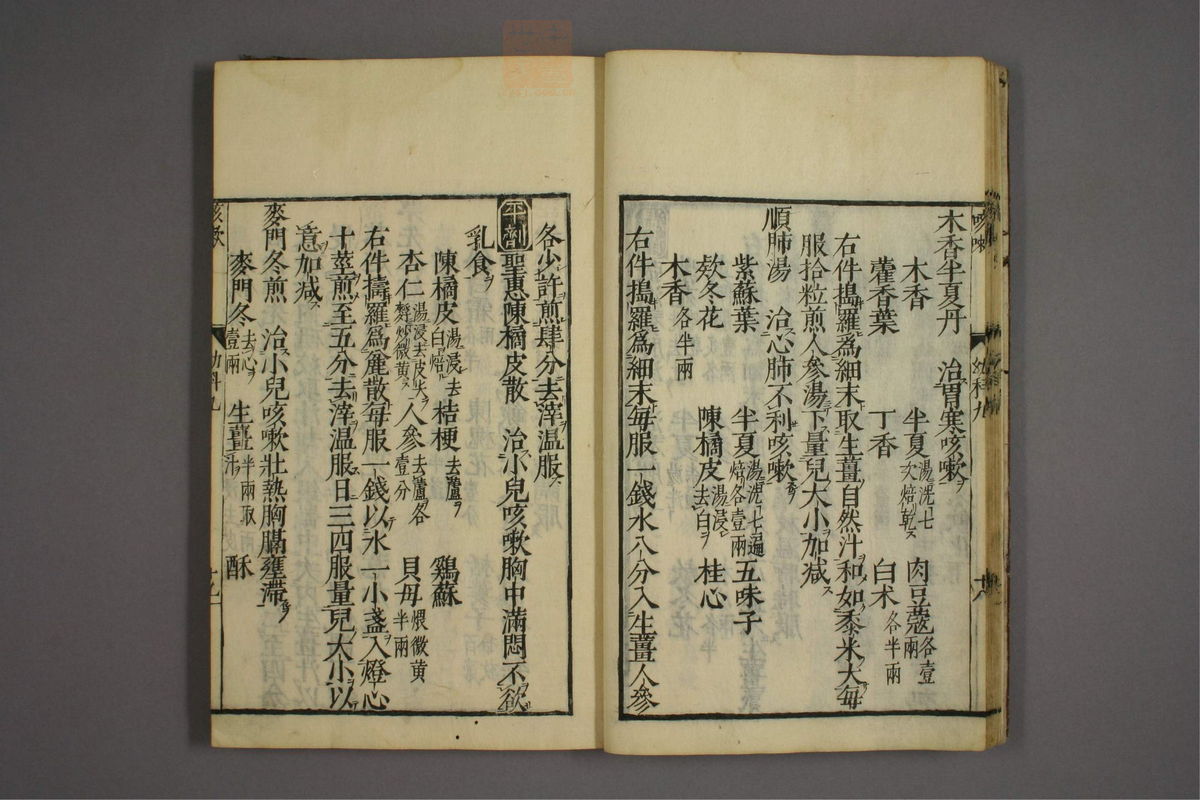 木香半夏丹　治胃寒咳嗽
木香　半夏湯洗七次焙乾　肉豆蔻各壹兩
藿香葉　丁香　白朮各半兩
右件搗羅為細末取生薑自然汁和如黍米大每
服拾粒煎人參湯下量兒大小加減
順肺湯　治心肺不利咳嗽
紫蘇葉　半夏湯洗七遍焙各壹兩　五味子
欵冬花　陳橘皮湯浸去白　桂心
木香各半兩
右件搗羅為細末每服一錢水八分入生薑人參
各少許煎肆分去滓温服
平劑　聖惠陳橘皮散　治小兒咳嗽胸中滿悶不欲
乳食
陳橘皮湯浸去白焙　桔梗去蘆　雞蘇
杏仁湯浸去皮尖麩炒微黄　人參去蘆各壹分　貝母煨微黄半兩
右件擣羅為麄散每服一錢以水一小盞入燈心
十莖煎至五分去滓温服日三四服量兒大小以
意加減
麥門冬煎　治小兒咳嗽壯熱胸膈壅滯
麥門冬去心壹兩　生薑半兩取汁　酥
咳嗽
幼科九
咳嗽
幼科九